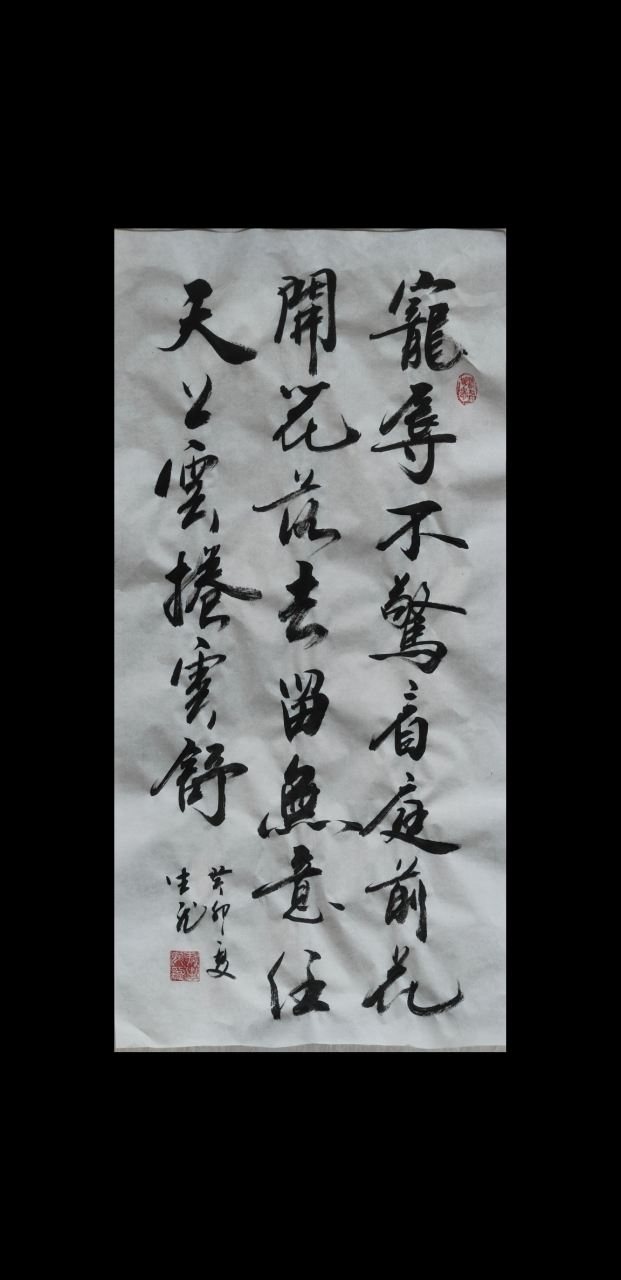 寵辱不驚看庭前花
開花落去留無意任
天公雲捲雲舒
癸卯夏